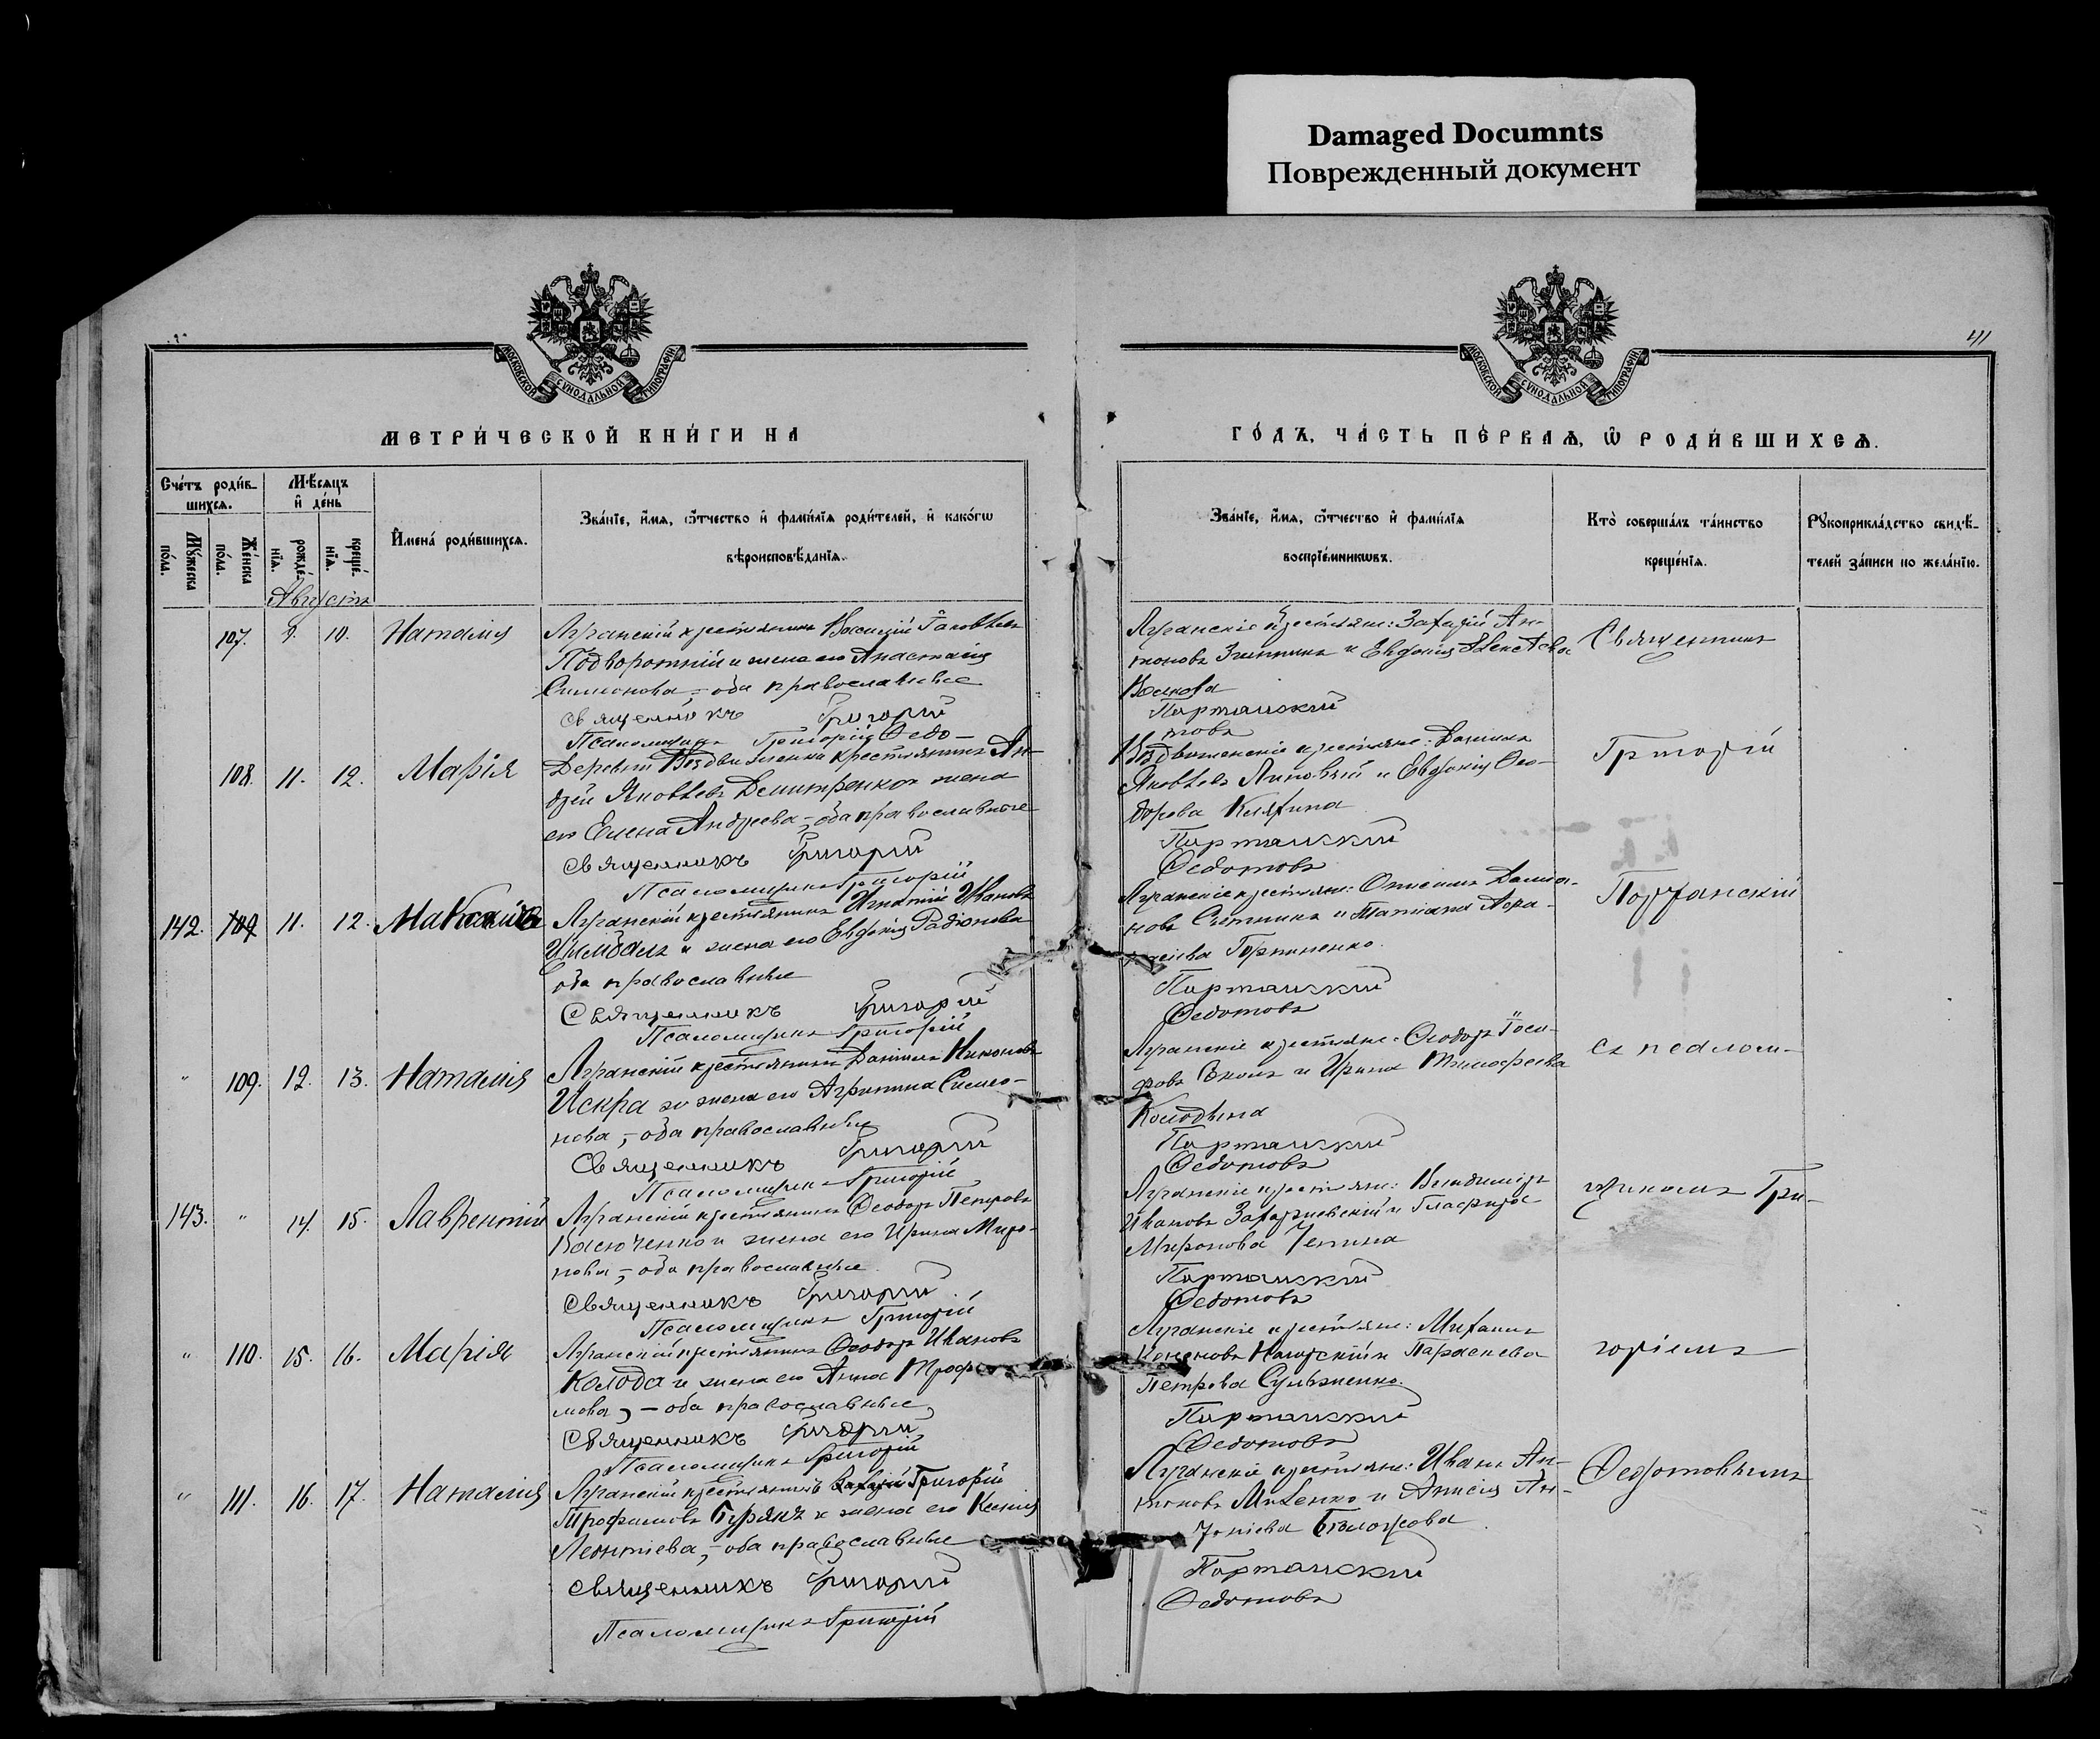 Damaged Documnts
Поврежденный документ
МОСКОВСКОЙ СѴНОДАЛЬНОЙ ТИПОГРАФІИ
МОСКОВСКОЙ СѴНОДАЛЬНОЙ ТИПОГРАФІИ
41
МЕТРИ́ЧЕСКОЙ КНИ́ГИ НА
ГО́ДЪ, ЧА́СТЬ ПЕ́РВАѦ, Ѽ РОДИ́ВШИХСѦ.
Сче́тъ роди́в-
шихсѧ.
Мꙋ́жеска по́ла.
Же́нска по́ла.
Мѣ́сѧцъ и де́нь
рожде́-
нїѧ.
креще́-
нїѧ.
Имена́ роди́вшихсѧ.
Зва́нїе, и́мѧ, ѻ́тчество и фами́лїѧ роди́телей, и како́гѡ
вѣроисповѣ́данїѧ.
Зва́нїе, и́мѧ, ѻ́тчество и фами́лїѧ
воспрїе́мникѡвъ.
Кто̀ соверша́лъ та́инство
креще́нїѧ.
Рꙋкоприкла́дство свидѣ́-
телей за́писи по жела́нїю.
Августъ
107. 10. Наталія
Луганскій крестьянинъ Яковлевъ
Подворотній и жена его Анастасія
Симеонова, - оба православные
Священникъ Григорій
Псаломщикъ Григорій Ѳедо-
Луганскіе крестьяне: Захарій Ан-
тоновъ и Евдокія
Волкова
Портанскій
товъ
Священникъ
108. 11. 12. Марія
Деревни Воздвиженки крестьянинъ Ан-
дрей Яковлевъ Демитренко и жена
его Елена Андреева, - оба православные
Священникъ Григорій
Псаломщикъ Григорій
Воздвиженскіе крестьяне: Даніилъ
Яковлевъ Липовый и Евдокія Ѳео-
дорова
Портанскій
Ѳедотовъ
Григорій
142. 109 11. 12.
Луганскій крестьянинъ Игнатій Ивановъ
и жена его Евдокія Радіонова
оба православные
Священникъ Григорій
Псаломщикъ Григорій
Луганскіе крестьяне: Онисимъ Даміа-
новъ Ситникъ и Татіана Аѳа-
насіева Горпиненко.
Портанскій
Ѳедотовъ
Портанскій
" 109. 12. 13. Наталія
Луганскій крестьянинъ Даніилъ Никоновъ
Искра и жена его Агрипина Симео-
нова, - оба православные
Священникъ Григорій
Псаломщикъ Григорій
Луганскіе крестьяне: Ѳеодоръ Іоси-
фовъ и Ирина Тимофеева
Колодина
Портанскій
Ѳедотовъ
съ псалом-
143. " 14. 15. Лаврентій
Луганскій крестьянинъ Ѳеодоръ Петровъ
Васюченко и жена его Ирина Миро-
нова, - оба православные
Священникъ Григорій
Псаломщикъ Григорій
Луганскіе крестьяне: Владиміръ
Ивановъ Захаржевскій и Гласира
Миронова
Портанскій
Ѳедотовъ
щикомъ Гри-
" 110. 15. 16. Марія
Луганскій крестьянинъ Ѳеодоръ Ивановъ
Колода и жена его Анна Трофи
мова, - оба православные
Священникъ Григорій
Псаломщикъ Григорій
Луганскіе крестьяне: Михаилъ
и Параскева
Петрова
Портанскій
Ѳедотовъ
горіемъ
" 111. 16. 17. Наталія
Луганскій крестьянинъ Григорій
Трофимовъ Бурякъ и жена его Ксенія
Леонтіева, - оба православные
Священникъ Григорій
Псаломщикъ Григорій
Луганскіе крестьяне: Иванъ Ан-
тоновъ и Анисія Ан-
тоніева
Портанскій
Ѳедотовъ
Ѳедотовымъ